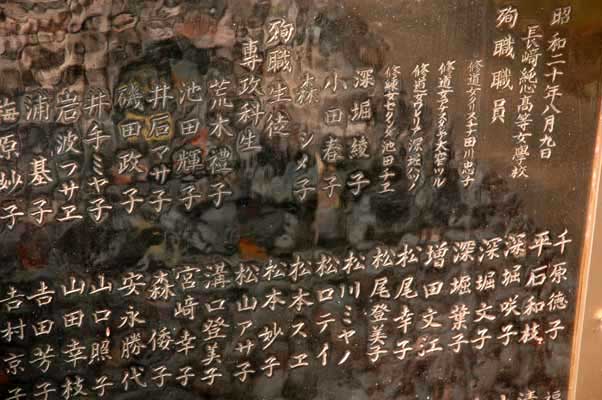 昭和二十年八月九日
長崎純心高等女學校
殉職職員
修道女クリスチナ田川忠子
修道女アンスガラ大窄ツル
修道女マグダレナ深堀ハツノ
池田千ヱ
深堀綾子
小田春子
森シメ子
殉職生徒
専攻科生
荒木禮子
池田輝子
井石アサ子
磯田政子
井手ミヤ子
岩波フサヱ
浦基子
梅原妙子
千原徳子
平石和枝
深堀咲子
深堀文子
深堀葉子
増田文江
松尾幸子
松尾登美子
松川ミヤノ
松口テイ
松本スヱ
松本妙子
松山アサ子
溝口登美子
宮崎幸子
森倭子
安永勝代
山口照子
山田幸枝
吉田芳子
吉村京子